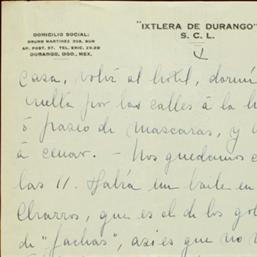 DOMICILIO SOCIAL:
BRUNO MARTINEZ 308, SUR
AP. POST. 57. TEL. ERIC. 29-20
DURANGO, DGO., MEX.
"IXTLERA DE DURANGO"
S. C. L.
casa, volví al hotel, dormí
vuelta por las calles á la h
ó paseo de mascaras, y
á cenar. - Nos quedamos
las 11. Había un baile en
Charros, que es el de los go
de "fachas", asi es que no